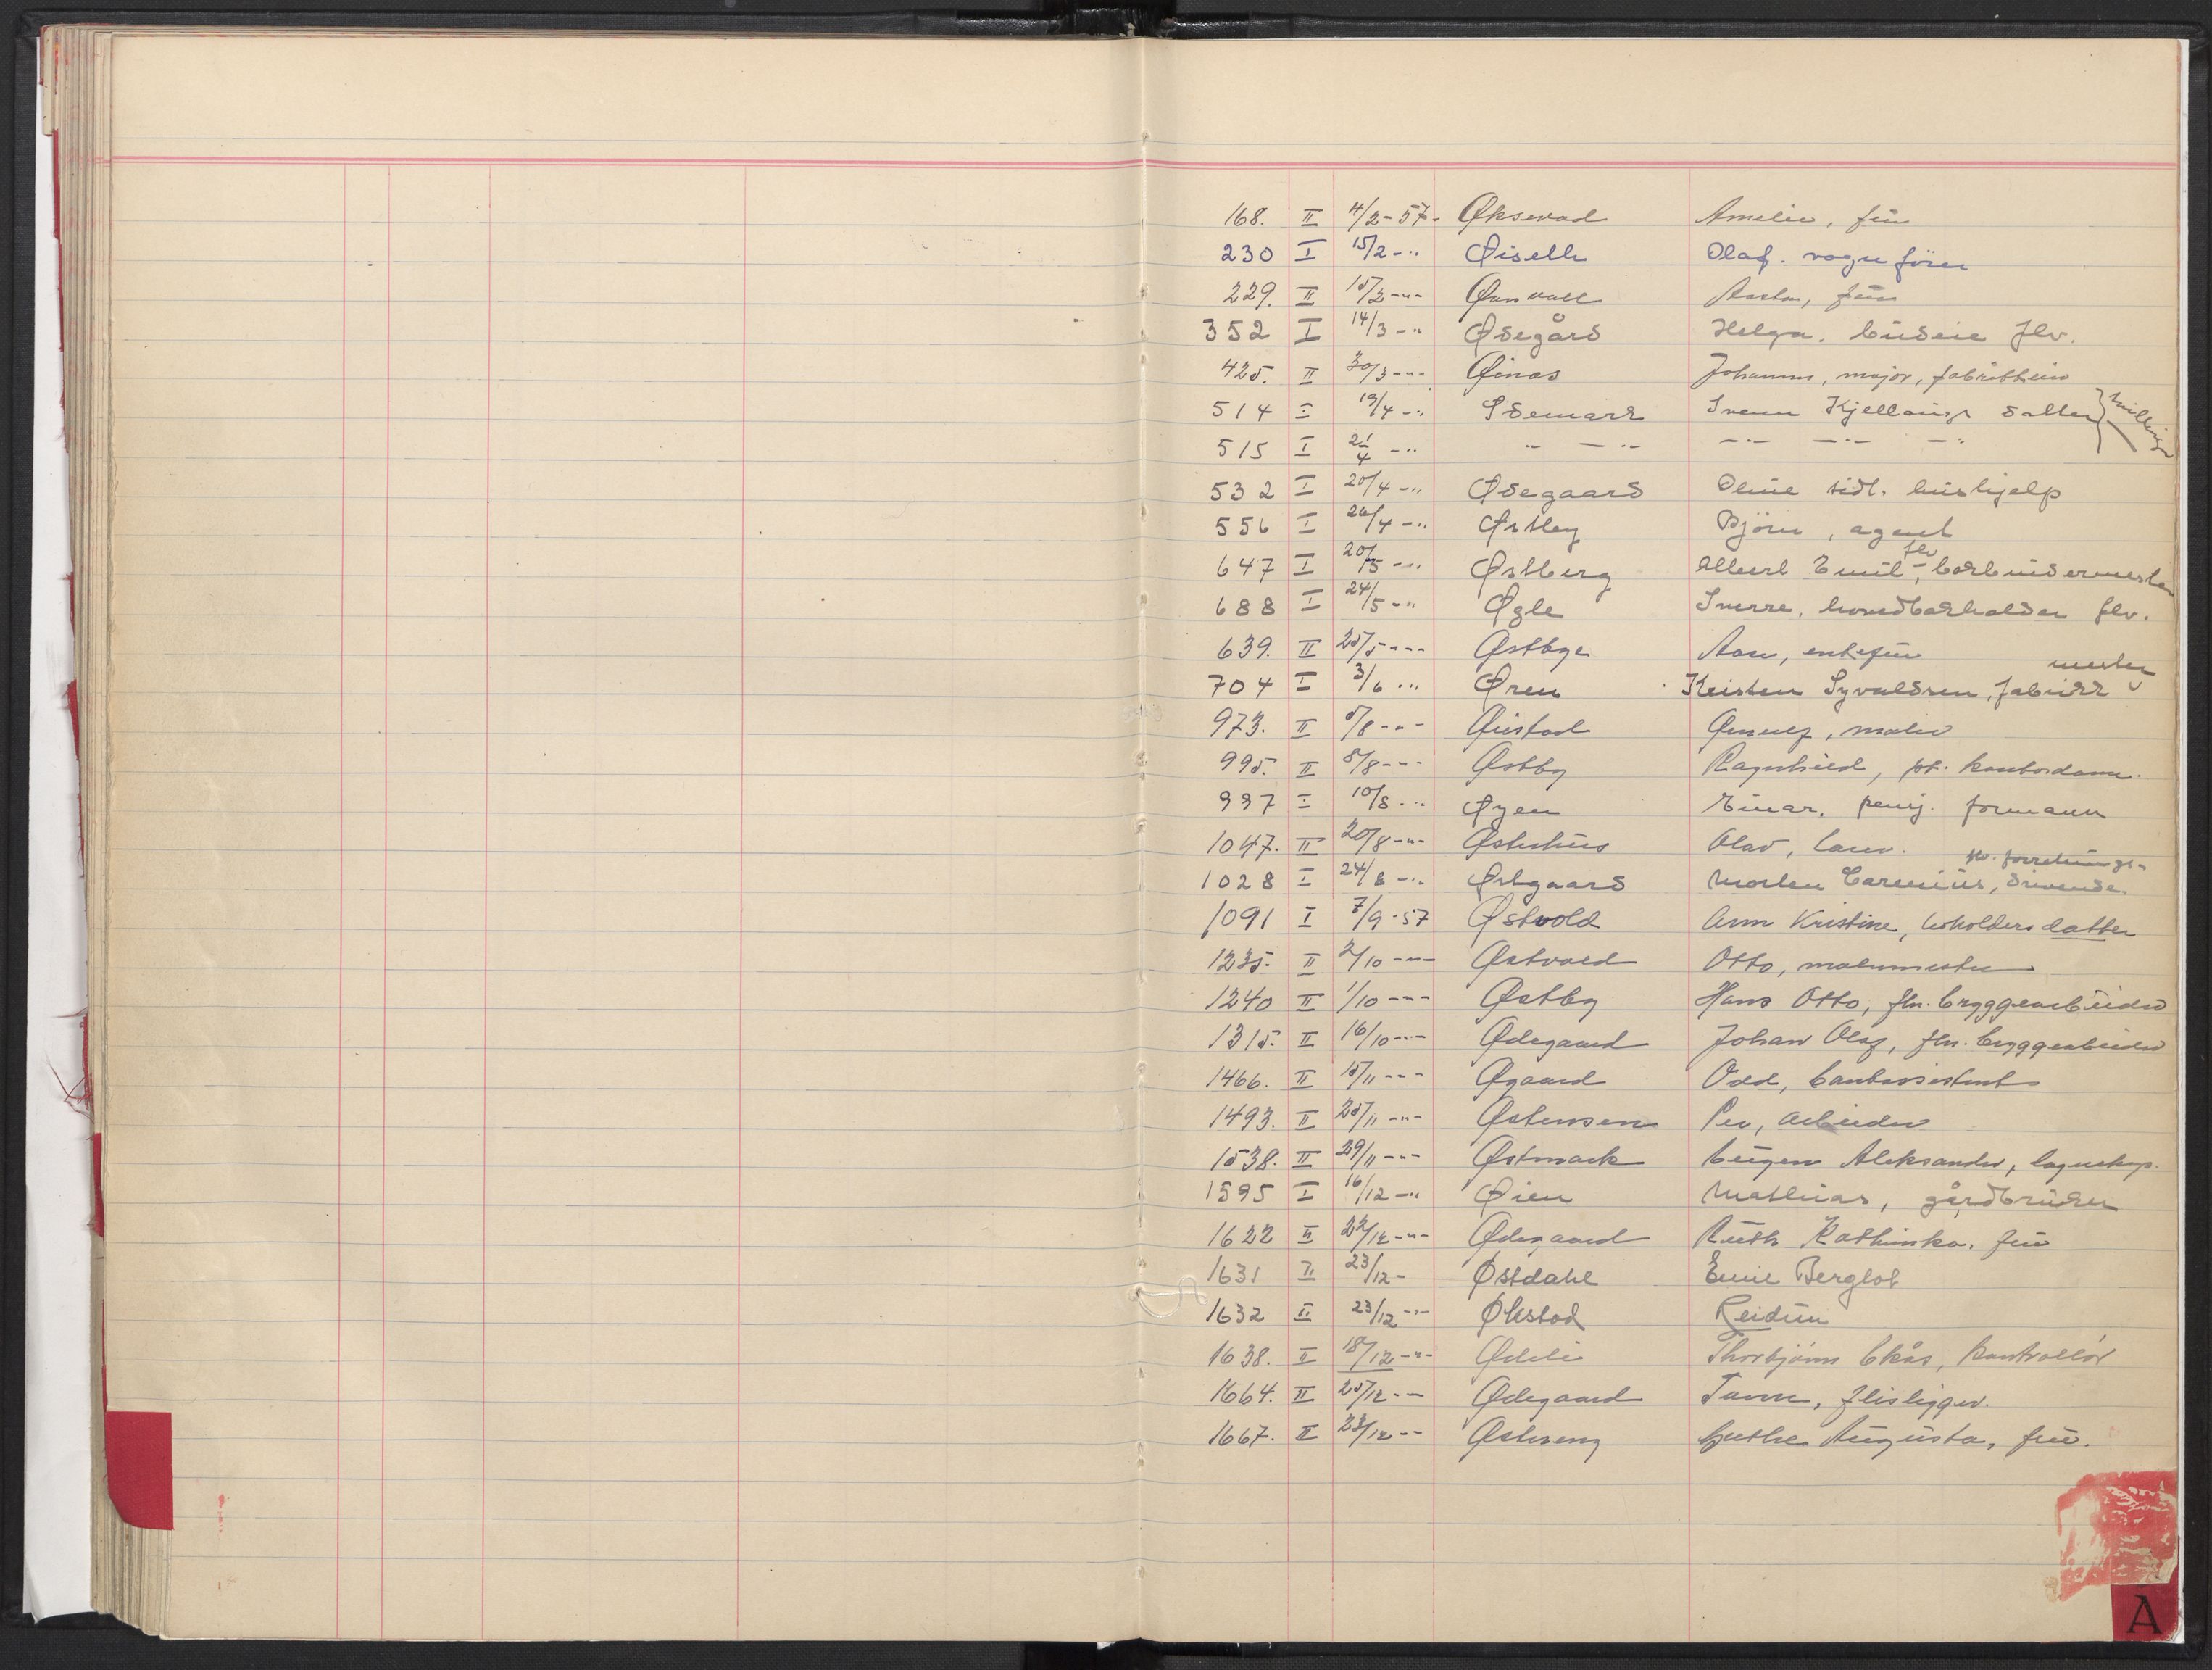 168. II 4/2-57- Øksevad Amelie, frü
230 I 15/2-" Øiseth Olaf. vognförer
229. II 15/2-"- Ørnvall Aasta, frü
352 I 14/3-" Ødegård Helga. büdeie flv.
425. II 30/3-"- Øinas Johannes, major, fabrikkeier
514 I 19/4-" Ødemark Svenn Kjellaüg datter } tvillinger
515 I 21/4-" " — " —"— —"— —"
532 I 20/4-" Ødegaard Oline tidl. hüshjelp
556 I 26/4-" Østby Björn, agent
flv
647 I 20/5-" Østberg Albert Emil, bokbindermester
688 I 24/5-" Øgle Sverre, hovedbokholder flv.
639. II 25/5-"- Østbye Aase, enkefrü
mester
704 I 3/6 " Øren Kristen Syvaldsen, fabrikk
973. II 5/8-"- Øistad Ørnulf, maler
995. II 8/8-"- Østby Ragnhild, pt. kontordame.
997 I 10/8-" Øyen Einar. penj. formann
1047. II 20/8-"- Østerhüs Olav,
flv. forretnings-
1028 I 24/8-" Østgaard Morten Carenius, drivende.
1091 I 7/9-57 Østvold Ann Kristine, datter
1235. II 2/10-"- Østvold Otto, malermester
1240 II 1/10-"- Østby Hans Otto, flv. bryggearbeider
1315. II 16/10-"- Ødegaard Johan Olaf, flv. bryggearbeider
1466. II 15/11-"- Øgaard Odd, bankassistent
1493. II 25/11-"- Østensen Per, arbeider
1538. II 29/11-"- Østmark Eügen Aleksander, lagereksp.
1595 I 16/12-" Øien Mathias, gårdbrüker
1622 II 22/12-"- Ødegaard Rüth Kathinka. frü
1631 II 23/12- Østdahl Emil Berglot
1632 II 23/12-"- Økstad Reidün
1638. II 18/12-"- Ødeli Thorbjörn kontrollör
1664. II 25/12-"- Ødegaard flislegger.
1667. II 23/12-"- Østreng Aügüsta, frü.
A